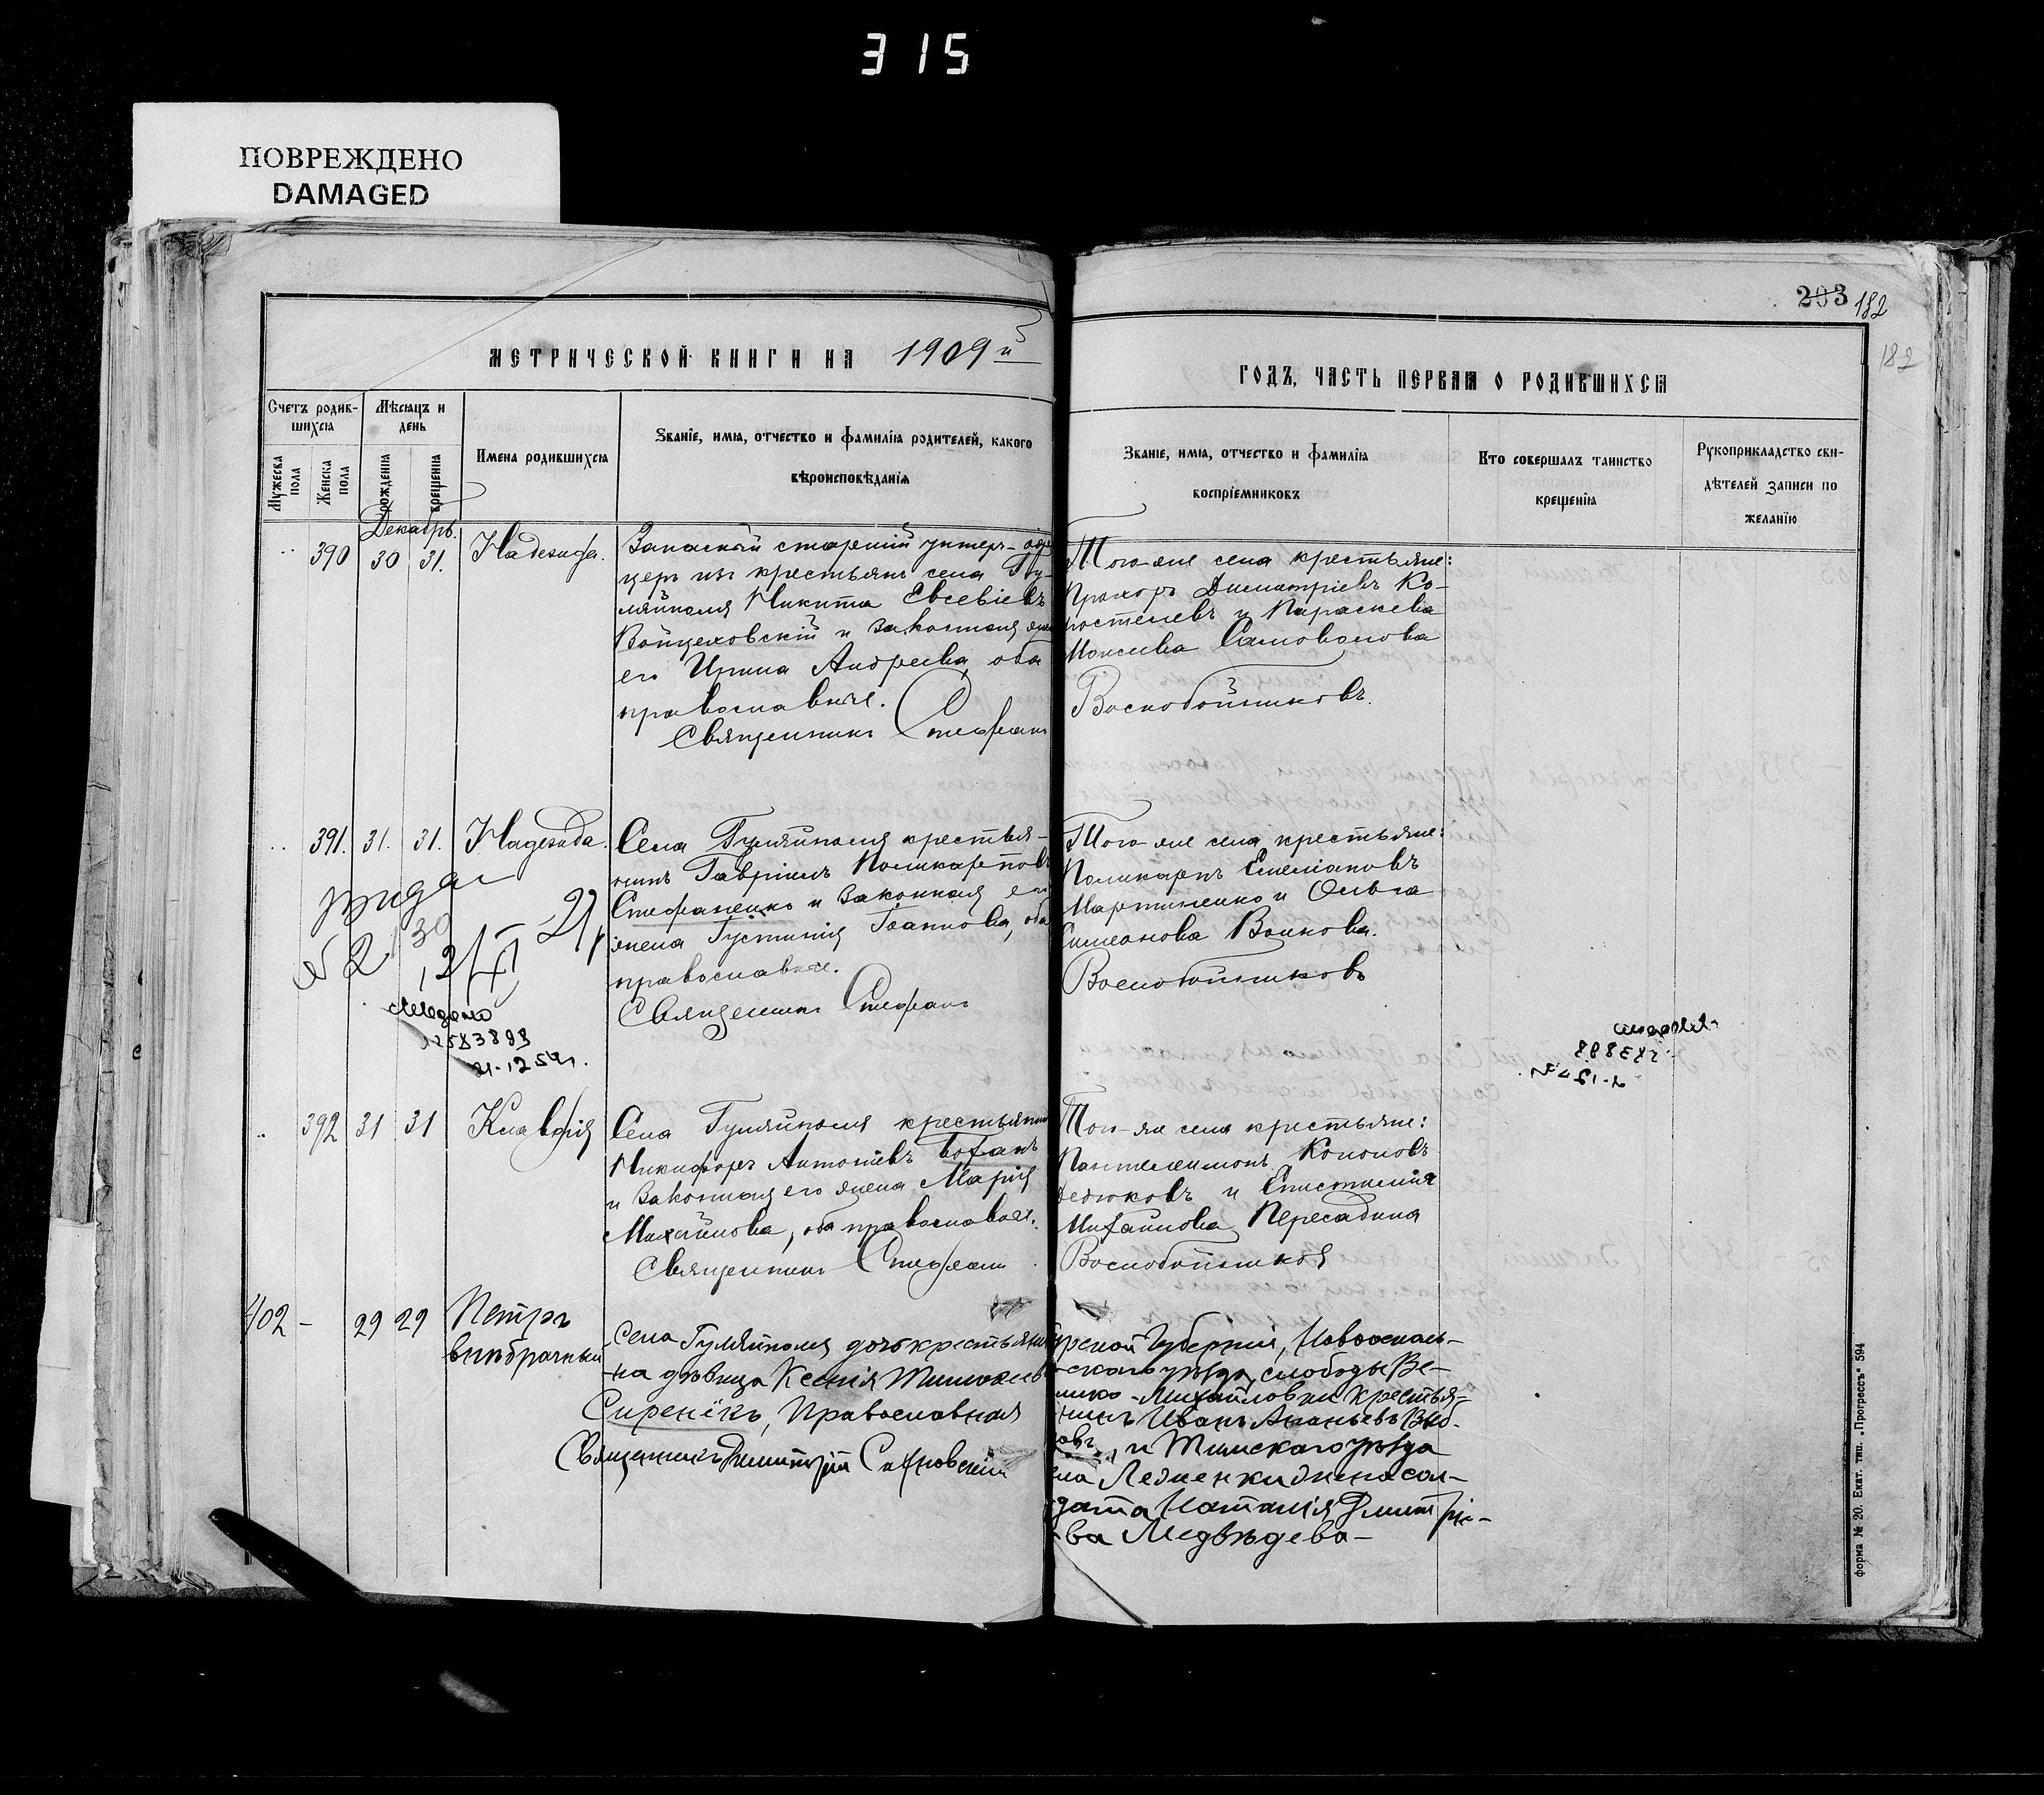 315
ПОВРЕЖДЕНО
DAMAGED
203 182
182
МЕТРИЧЕСКОЙ КНИГИ НА 1909й
ГОДЪ, ЧАСТЬ ПЕРВАЯ О РОДИВШИХСЯ
Счетъ родив-
шихся
Мужеска пола
Женска пола
Мѣсяцъ и
день
рожденія
крещенія
Имена родившихся
Званіе, имя, отчество и фамилія родителей, какого
вѣроисповѣданія
Званіе, имя, отчество и фамилія
воспріемниковъ
Кто совершалъ таинство
крещенія
Рукоприкладство сви-
дѣтелей записи по
желанію
Декабрь.
390 30 31. Надежда.
Запасный старшій унтеръ-офи
церъ изъ крестьянъ села Гу-
ляйполя Никита Евсевіевъ
Войцеховскій и законная жена
его Ирина Андреева, оба
православные.
Священникъ Стефанъ
Того-же села крестьяне:
Прохоръ Димитріевъ Ко-
ростелевъ и Параскева
Моисеева Самоволова
Воскобойниковъ.
391. 31. 31. Надежда.
Села Гуляйполя крестья-
нинъ Гавріилъ Поликарповъ
Стефаненко и законная его
жена Іустинія Іоаннова, оба
православные.
Священникъ Стефанъ
Того-же села крестьяне:
Поликарпъ Емеліановъ
Мартыненко и Ольга
Симеонова Волкова.
Воскобойниковъ
№ 2 30
12/XI 21
583893
21.12.54г.
392 31 31 Клавдія
Села Гуляйполя крестьянинъ
Никифоръ Антоніевъ Боханъ
и законная его жена Марія
Михайлова, оба православные.
Священникъ Стефанъ
Того-же села крестьяне:
Пантелеимонъ Кононовъ
и Епистимія
Михайлова Пересадина
Воскобойниковъ
402 - 29 29 Петръ
внѣбрачный
Села Гуляйполя дочь крестьяни
-на дѣвица Ксенія Тимоѳеева
Сиренёкъ, Православная
Священникъ Димитрій Сахновскій
Курской губерніи, Новоосколь-
-скаго уѣзда, слободы Ве-
лико-Михайловки крестья-
-нинъ Иванъ Ананьевъ
и Тимскаго уѣзда
села Леженки жена сол-
дата Наталія Димитріе-
-ва Медвѣдева-
форма № 20. Екат. тип. „Прогрессъ" 594